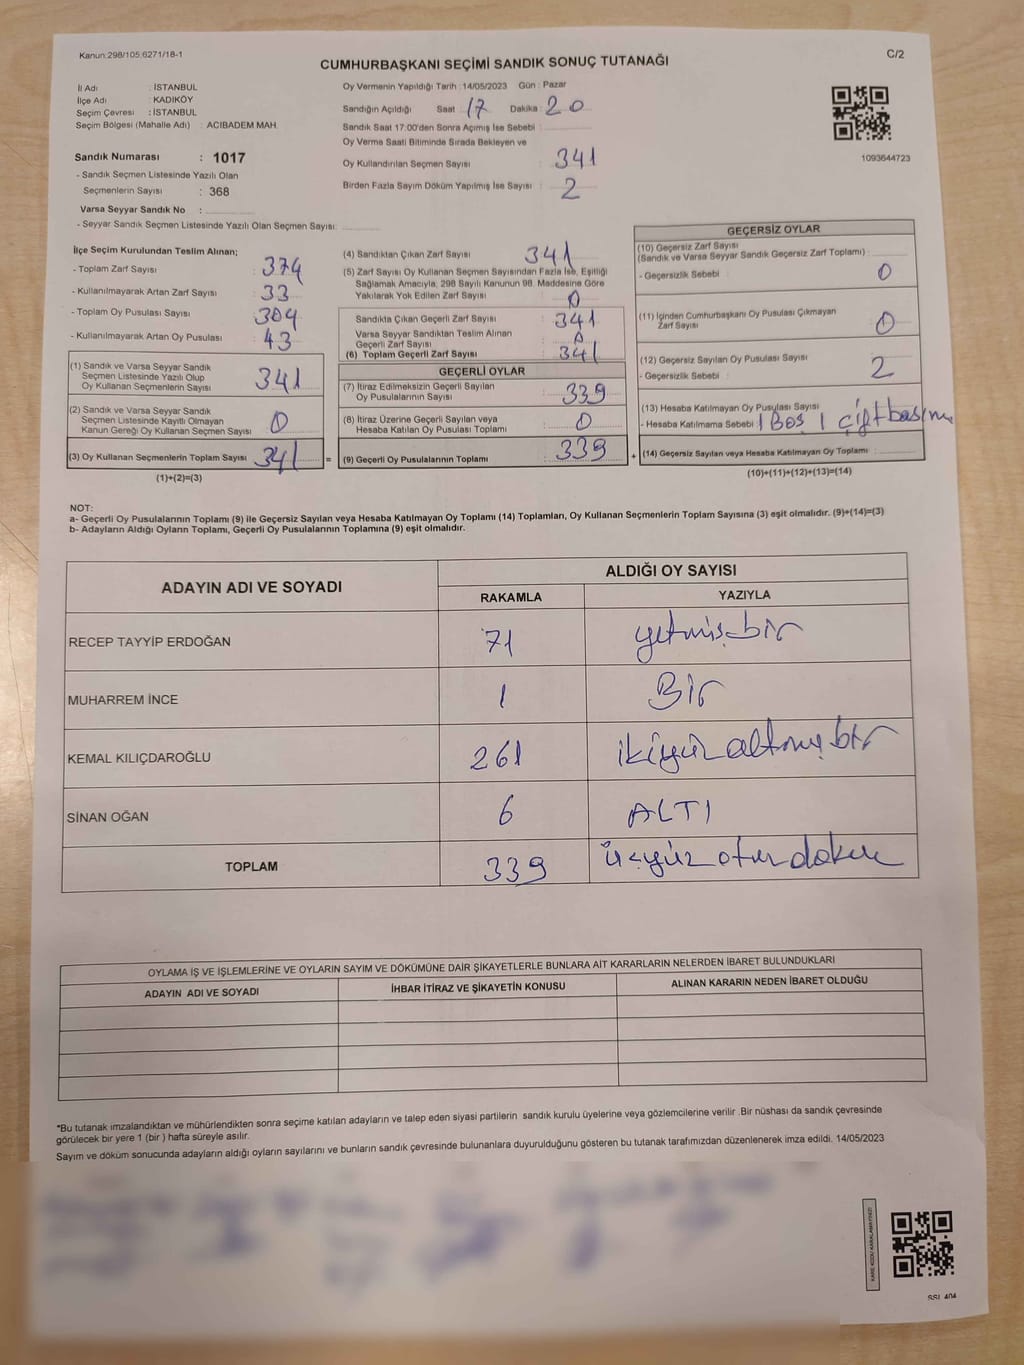 Kanun:298/105,6271/18-1
C/2
CUMHURBAŞKANI SEÇİMİ SANDIK SONUÇ TUTANAĞI
İl Adı : İSTANBUL
İlçe Adı : KADIKÖY
Seçim Çevresi : İSTANBUL
Seçim Bölgesi (Mahalle Adı) : ACIBADEM MAH.
Sandık Numarası : 1017
- Sandık Seçmen Listesinde Yazılı Olan
Seçmenlerin Sayısı : 368
Varsa Seyyar Sandık No :
- Seyyar Sandık Seçmen Listesinde Yazılı Olan Seçmen Sayısı:
Oy Vermenin Yapıldığı Tarih : 14/05/2023 Gün : Pazar
Sandığın Açıldığı Saat 17 Dakika 20
Sandık Saat 17:00'den Sonra Açımış İse Sebebi :
Oy Verme Saati Bitiminde Sırada Bekleyen ve
Oy Kullandırılan Seçmen Sayısı : 341
Birden Fazla Sayım Döküm Yapılmış İse Sayısı : 2
1093644723
İlçe Seçim Kurulundan Teslim Alınan;
- Toplam Zarf Sayısı : 374
- Kullanılmayarak Artan Zarf Sayısı : 33
- Toplam Oy Pusulası Sayısı : 384
- Kullanılmayarak Artan Oy Pusulası : 43
(1) Sandık ve Varsa Seyyar Sandık
Seçmen Listesinde Yazılı Olup
Oy Kullanan Seçmenlerin Sayısı : 341
(2) Sandık ve Varsa Seyyar Sandık
Seçmen Listesinde Kayıtlı Olmayan
Kanun Gereği Oy Kullanan Seçmen Sayısı : 0
(3) Oy Kullanan Seçmenlerin Toplam Sayısı : 341
(1)+(2)=(3)
(4) Sandıktan Çıkan Zarf Sayısı : 341
(5) Zarf Sayısı Oy Kullanan Seçmen Sayısından Fazla İse, Eşitliği
Sağlamak Amacıyla, 298 Sayılı Kanunun 98. Maddesine Göre
Yakılarak Yok Edilen Zarf Sayısı : 0
Sandıkta Çıkan Geçerli Zarf Sayısı : 341
Varsa Seyyar Sandıktan Teslim Alınan
Geçerli Zarf Sayısı : 0
(6) Toplam Geçerli Zarf Sayısı : 341
GEÇERLİ OYLAR
(7) İtiraz Edilmeksizin Geçerli Sayılan
Oy Pusulalarının Sayısı : 339
(8) İtiraz Üzerine Geçerli Sayılan veya
Hesaba Katılan Oy Pusulası Toplamı : 0
= (9) Geçerli Oy Pusulalarının Toplamı : 339
GEÇERSİZ OYLAR
(10) Geçersiz Zarf Sayısı
(Sandık ve Varsa Seyyar Sandık Geçersiz Zarf Toplamı) :
- Geçersizlik Sebebi : 0
(11) İçinden Cumhurbaşkanı Oy Pusulası Çıkmayan
Zarf Sayısı : 0
(12) Geçersiz Sayılan Oy Pusulası Sayısı :
- Geçersizlik Sebebi : 2
(13) Hesaba Katılmayan Oy Pusulası Sayısı :
- Hesaba Katılmama Sebebi 1 Boş 1 çift basım
+ (14) Geçersiz Sayılan veya Hesaba Katılmayan Oy Toplamı :
(10)+(11)+(12)+(13)=(14)
NOT:
a- Geçerli Oy Pusulalarının Toplamı (9) ile Geçersiz Sayılan veya Hesaba Katılmayan Oy Toplamı (14) Toplamları, Oy Kullanan Seçmenlerin Toplam Sayısına (3) eşit olmalıdır. (9)+(14)=(3)
b- Adayların Aldığı Oyların Toplamı, Geçerli Oy Pusulalarının Toplamına (9) eşit olmalıdır.
ADAYIN ADI VE SOYADI
ALDIĞI OY SAYISI
RAKAMLA YAZIYLA
RECEP TAYYİP ERDOĞAN 71 yetmiş bir
MUHARREM İNCE 1 Bir
KEMAL KILIÇDAROĞLU 261 ikiyüz altmış bir
SİNAN OĞAN 6 ALTI
TOPLAM 339 üçyüz otuz dokuz
OYLAMA İŞ VE İŞLEMLERİNE VE OYLARIN SAYIM VE DÖKÜMÜNE DAİR ŞİKAYETLERLE BUNLARA AİT KARARLARIN NELERDEN İBARET BULUNDUKLARI
ADAYIN ADI VE SOYADI İHBAR İTİRAZ VE ŞİKAYETİN KONUSU ALINAN KARARIN NEDEN İBARET OLDUĞU
*Bu tutanak imzalandıktan ve mühürlendikten sonra seçime katılan adayların ve talep eden siyasi partilerin sandık kurulu üyelerine veya gözlemcilerine verilir .Bir nüshası da sandık çevresinde
görülecek bir yere 1 (bir ) hafta süreyle asılır.
Sayım ve döküm sonucunda adayların aldığı oyların sayılarını ve bunların sandık çevresinde bulunanlara duyurulduğunu gösteren bu tutanak tarafımızdan düzenlenerek imza edildi. 14/05/2023
KARE KODU KARALAMAYINIZ!